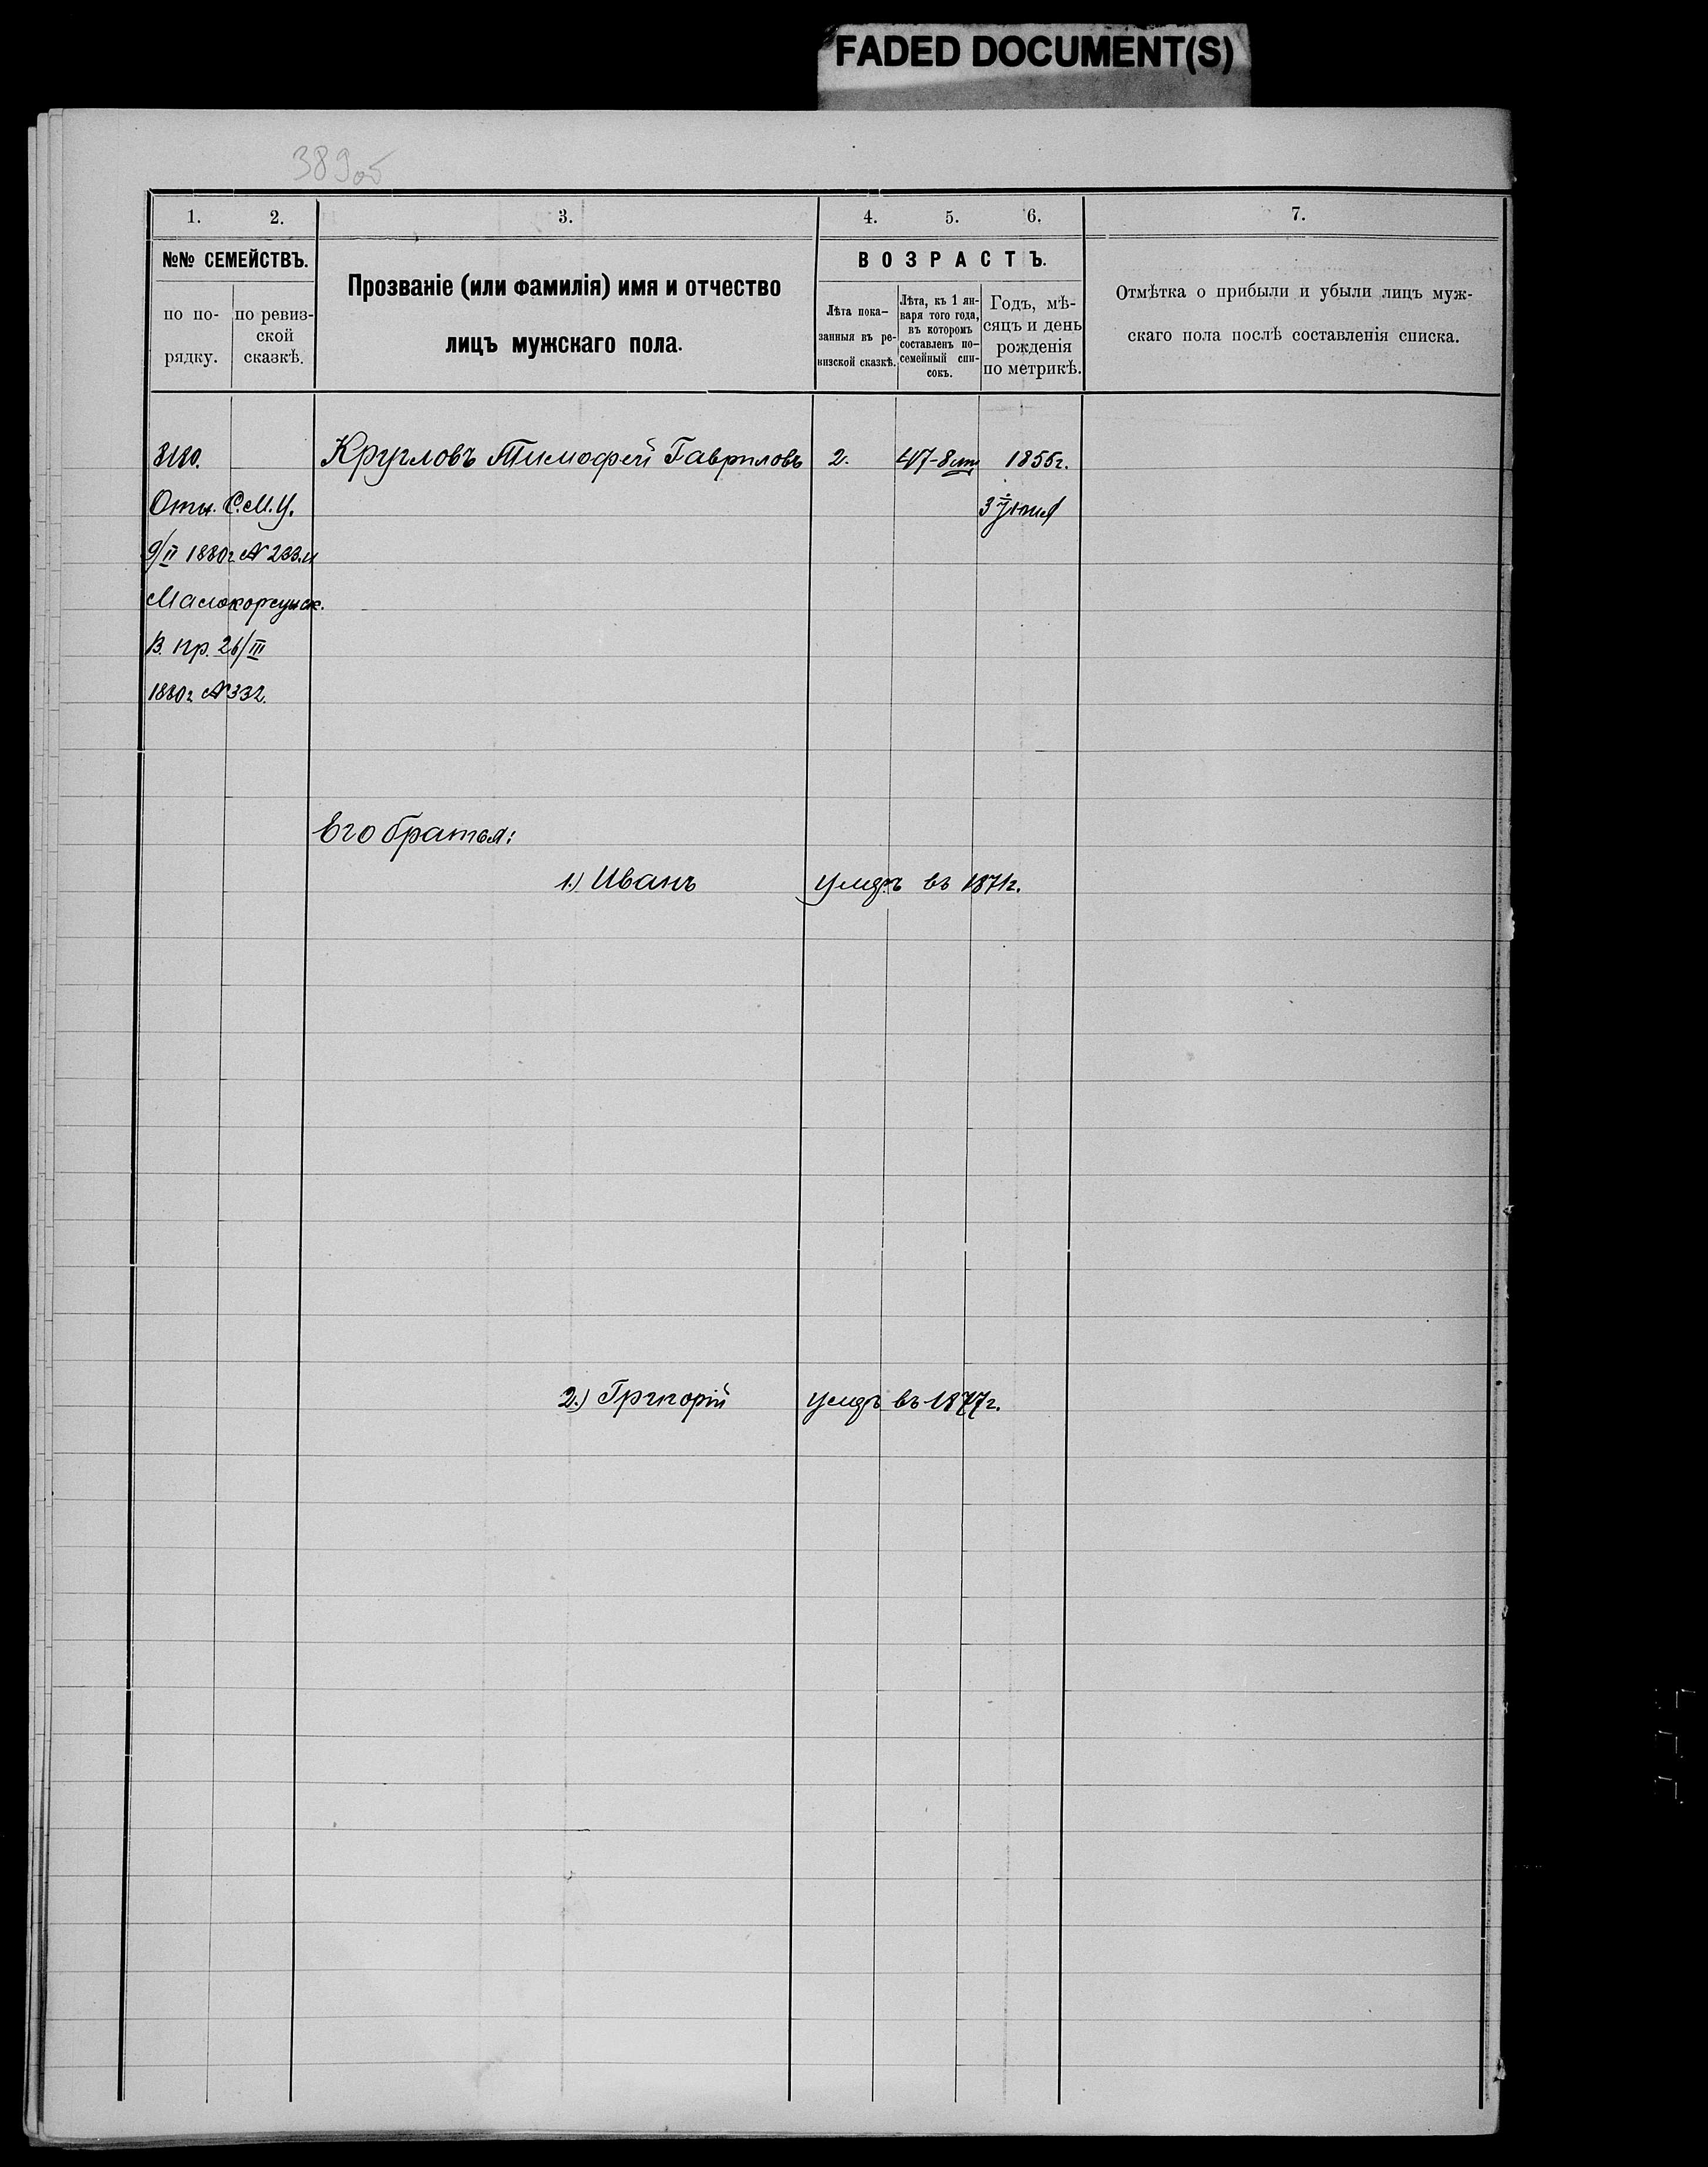 FADED DOCUMENT(S)
389об
1. 2. 3. 4. 5. 6. 7.
№№ СЕМЕЙСТВЪ.
по порядку.
по ревизской сказкѣ.
Прозваніе (или фамилія) имя и отчество
лицъ мужскаго пола.
ВОЗРАСТЪ.
Лѣта показанныя въ ревизской сказкѣ.
Лѣта, къ 1 января того года, въ которомъ составленъ посемейный списокъ.
Годъ, мѣсяцъ и день рожденія по метрикѣ.
Отмѣтка о прибыли и убыли лицъ муж-
скаго пола послѣ составленія списка.
8180. Кругловъ Тимофей Гавриловъ 2. 47-8 1855г.
Отн. С.М.У. 3 Іюня
9/II 1880г. № 233.и
Малокорсунск.
В. пр. 26/III
1880г № 332.
Его братья:
1.) Иванъ умеръ въ 1871г.
2.) Григорій умеръ въ 1877г.